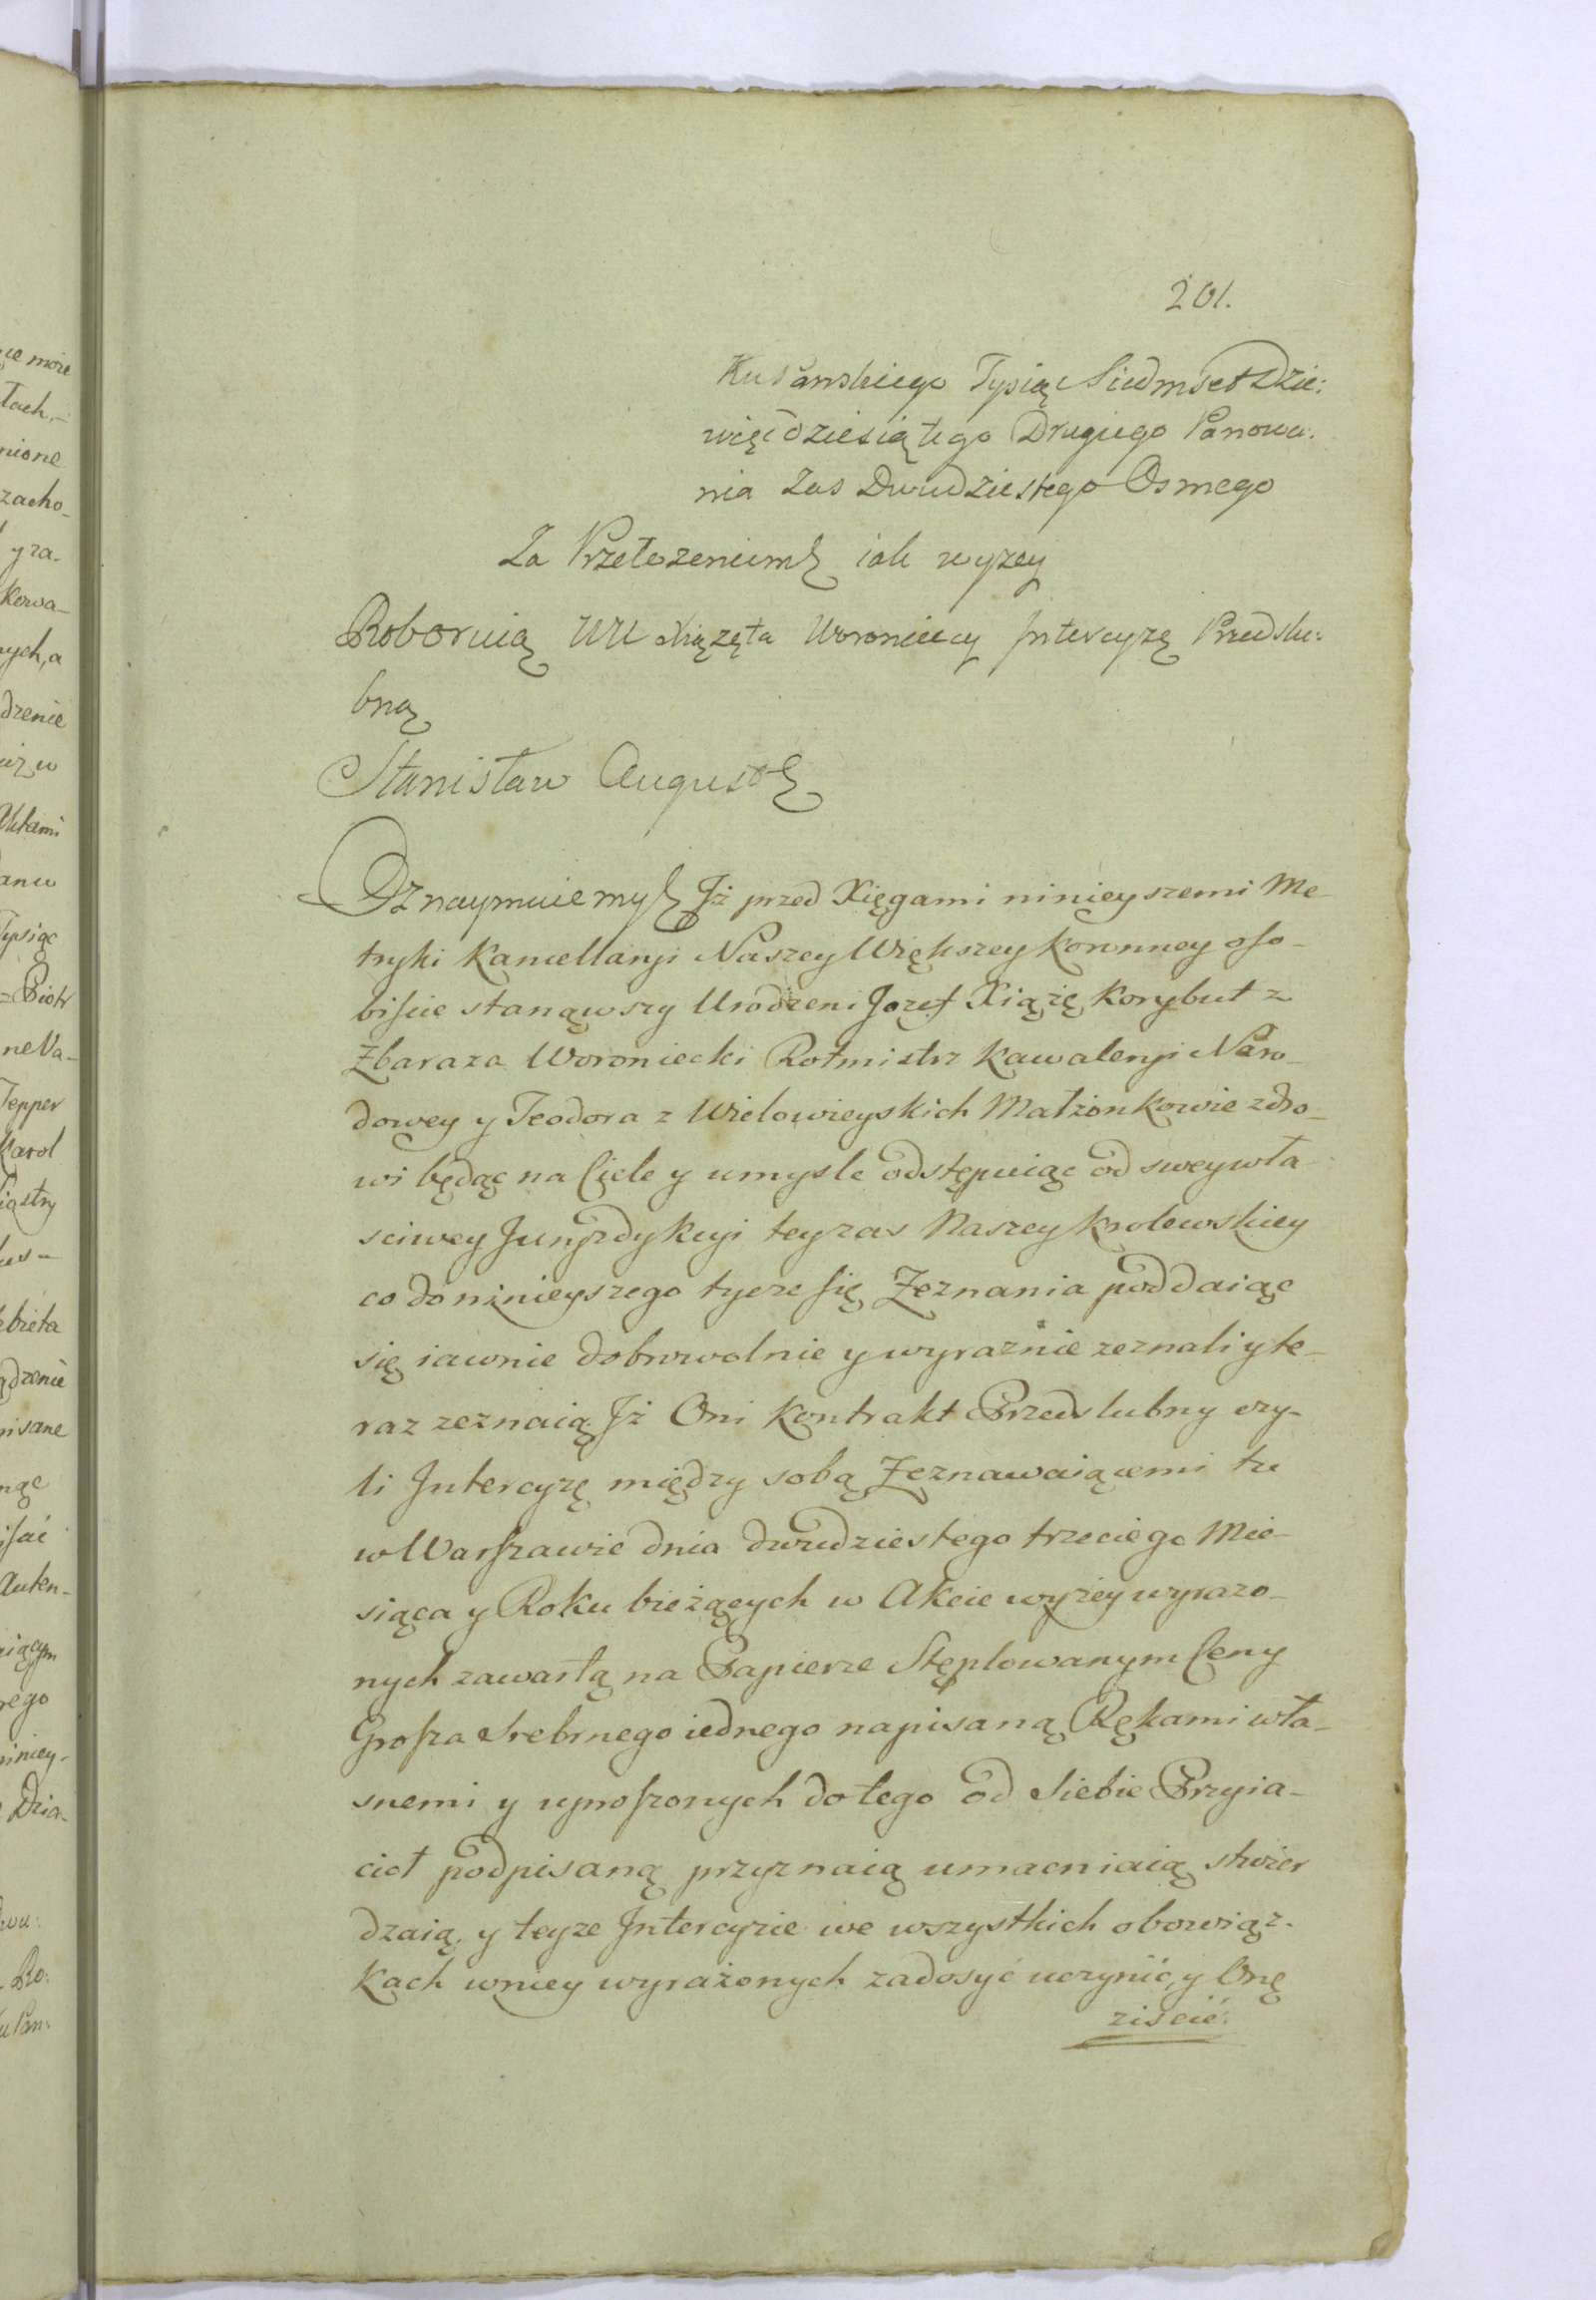 201.
Ku Pańskiego Tysiąc Siedmset Dzie:
więćdziesiątego Drugiego Panowa:
nia Zas Dwudziestego Osmego
Za Przełozeniem iak wyzey
Roboruią WU Xiązęta Woronieccy Intercyzę Przedslu:
bną
Stanisław August
Oznaymuiemy Iż przed Xięgami ninięyszemi Me-
tryki Kancellaryi Naszey Większey Koronney oso-
biscie stanąwszy Urodzeni Jozef Xiążę Korybut z
Zbaraza Woroniecki Rotmistrz Kawaleryi Naro-
dowey y Teodora z Wielowieyskich Małżonkowie zdro-
wi będąc na Ciele y umysle odstępuiąc od swey wła-
sciwey Juryzdykcyi teyzas Naszey Krolewskiey
co do ninieyszego tycze się Zeznania poddaiąc
się iawnie dobrowolnie y wyraznie zeznali y te-
raz zeznaią Iż Oni Kontrakt Przedslubny czy-
li Intercyzę między sobą Zeznawaiącemi tu
w Warszawie dnia dwudziestego trzeciego Mie-
siąca y Roku bieżących w Akcie wyżey wyrazo-
nych zawartą na Papierze Stęplowanym Ceny
Grosza Srebrnego iednego napisaną Rękami wła-
snemi y uproszonych do tego od Siebie Przyia-
ciot podpisaną przyznaią umacniaią stwier
dzaią y teyze Intercyzie we wszystkich obowiąz-
kach w niey wyrażonych zadosyć uczynić, y Onę
ziscić:
ie może
łach,-
nione
zacho-
y za-
kowa-
ych, a
dzenie
iż w
Aktami
anu
Tysiąc
Piotr
ne Na-
Tepper
Karol
bieta
dzenie
isane
isać
Auten-
iącym
rego
niniey-
Dzia-